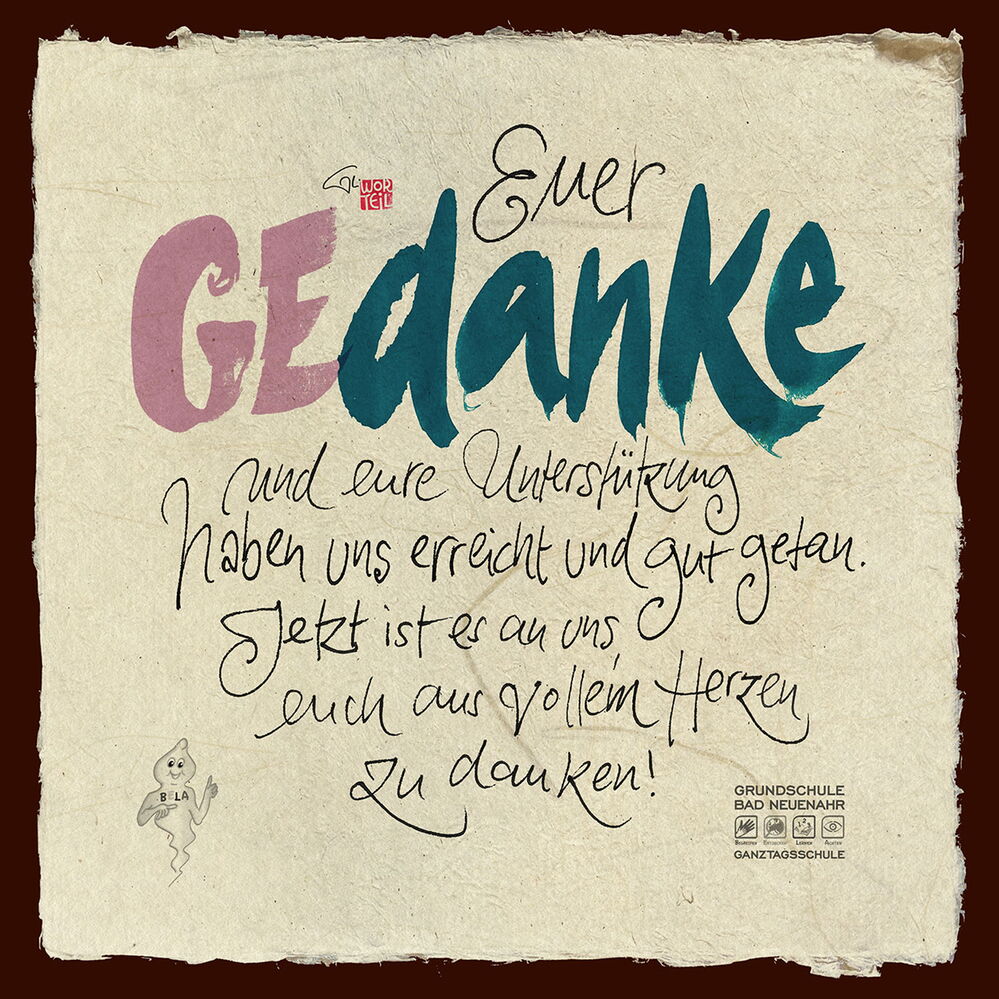 Euer
WOR
TEIL
GEdanke
und eure Unterstützung
haben uns erreicht und gut getan.
Jetzt ist es an uns,
euch aus vollem Herzen
zu danken!
BELA
GRUNDSCHULE
BAD NEUENAHR
BEGREIFEN ENTDECKEN LERNEN ACHTEN
GANZTAGSSCHULE